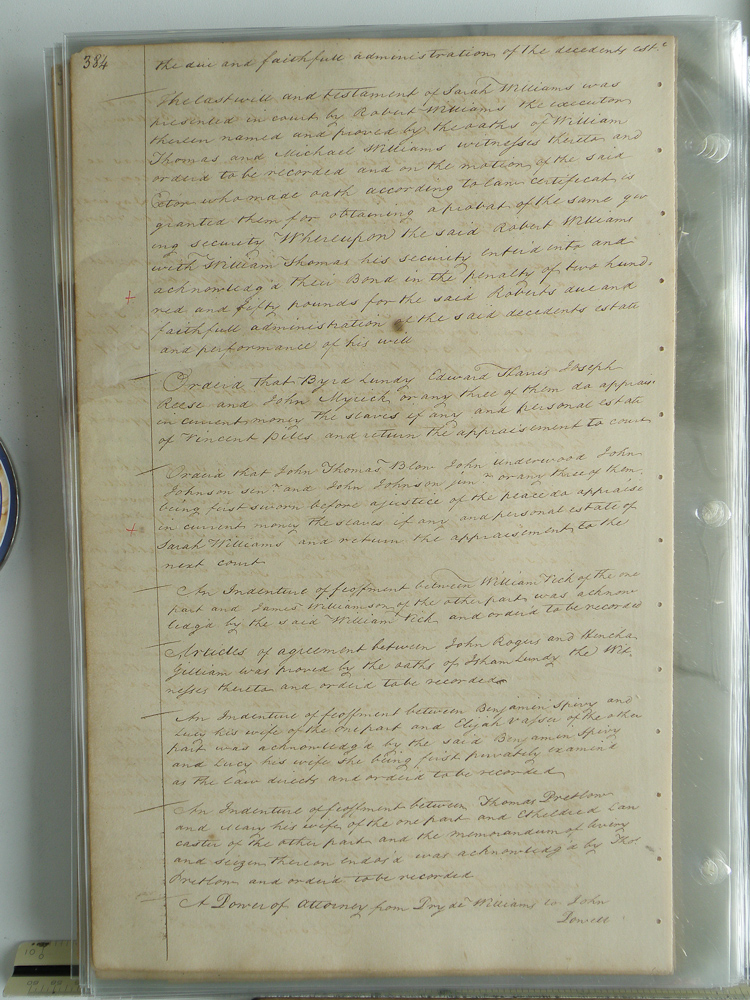 384
the due and faithfull administration of the decedents este
The last will and testament of Sarah Williams was
presented in court by Robert Williams the executor
therein named and proved by the oaths of William
Thomas and Michael Williams witnesses thereto and
orderd to be recorded and on the motion of the said
Exctor who made oath according to law certificat is
granted them for obtaining a probat of the same giv
ing security Whereupon the said Robert Williams
with William Thomas his security enterd into and
acknowledg'd their Bond in the penalty of two hund-
red and fifty pounds for the said Roberts due and
faithfull administration of the said decedents estate
and performance of his will
Orderd that Byrd Lundy Edward Harris Joseph
Reese and John Myrick or any three of them do apprais
in current money the slaves if any and personal estate
of Vincent and return the appraisement to court
Orderd that John Thomas Blow John Underwood John
Johnson senr and John Johnson junr or any three of them
being first sworn before a justice of the peace do appraise
in current money the slaves if any and personal estate of
Sarah Williams and return the appraisement to the
next court
An Indenture of feoffment between William Vick of the one
part and James Williamson of the other part was acknow
ledg'd by the said William Vick and orderd to be recorded
Articles of agreement between John Rogers and Hincha
Gilliam was proved by the oaths of Isham Lundy the Wit-
nesses thereto and orderd to be recorded
An Indenture of feoffment between Benjamin Spivy and
Lucy his wife of the one part and Elijah Vasser of the other
part was acknowledg'd by the said Benjamin Spivy
and Lucy his wife she being first privately examind
as the law directs and orderd to be recorded
An Indenture of feoffment between Thomas Pretlow
and Mary his wife of the one part and Etheldred Lan
caster of the other part and the memorandum of livery
and seizen thereon endos'd was acknowledg'd by Tho.
Pretlow and orderd to be recorded
A Power of Attorney from Williams to John
Powell